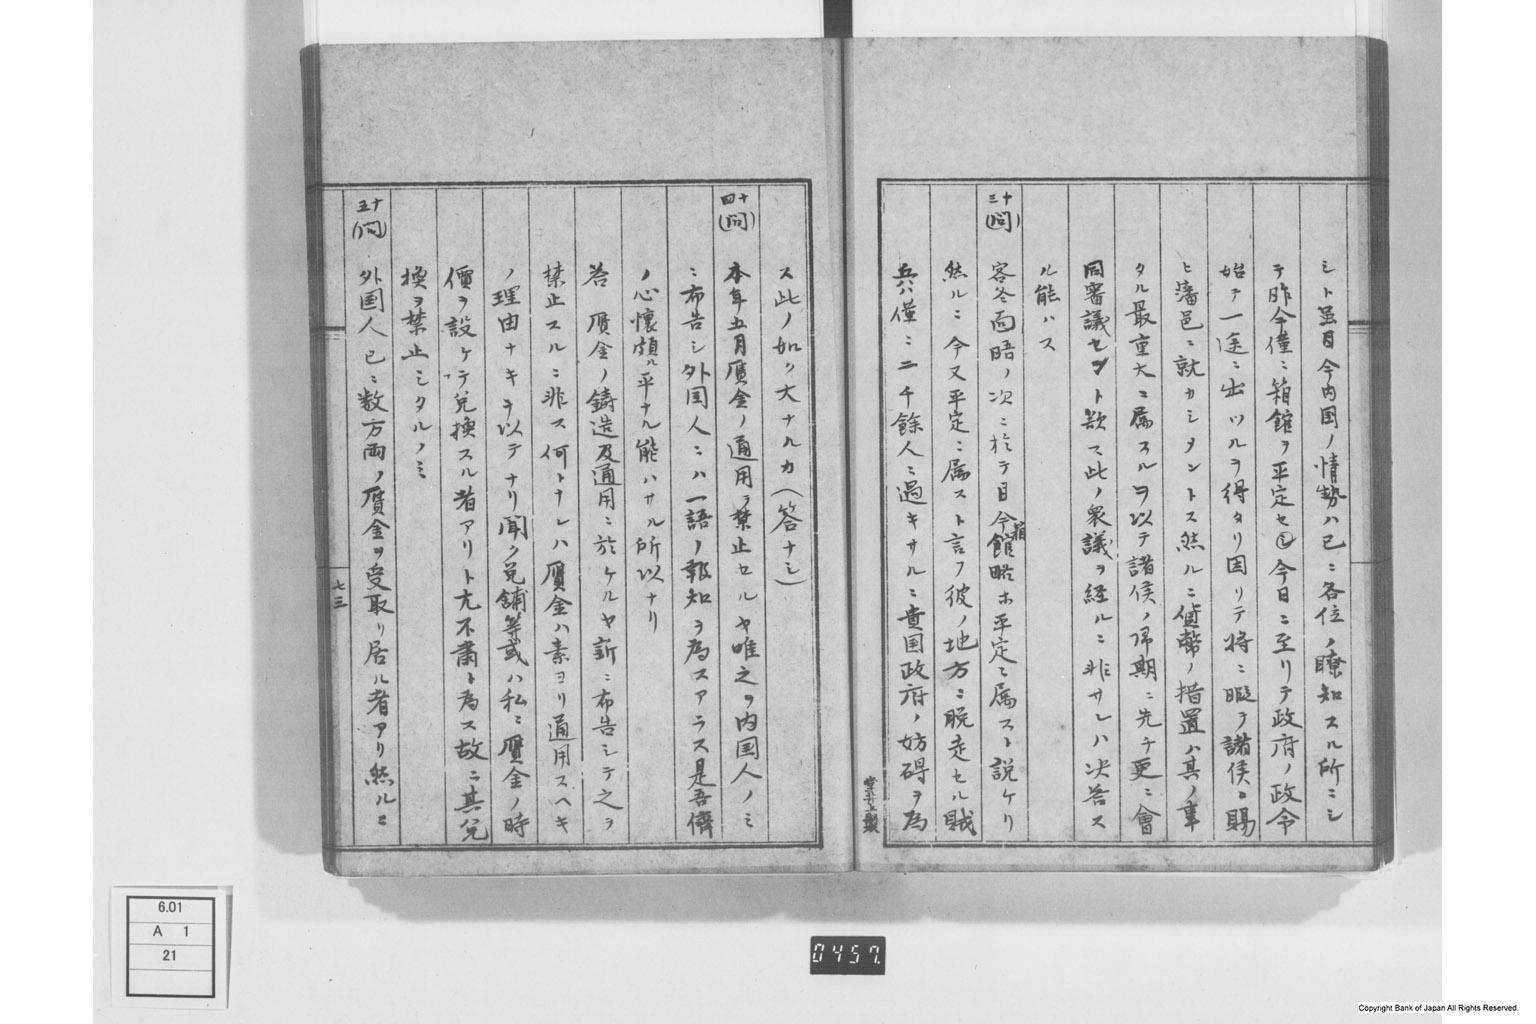 シト虽目今内国ノ情勢ハ已ニ各位ノ瞭知スル所ニシ
テ昨今僅ニ箱館ヲ平定セシ今日ニ至リテ政府ノ政令
始テ一途ニ出ツルヲ得タリ因リテ将ニ暇ヲ諸侯ニ賜
ヒ藩邑ニ就カシメントス然ルニ貨幣ノ措置ハ其ノ事
タル最重大ニ属スルヲ以テ諸侯ノ帰期ニ先チ更ニ會
同審議セント欲ス此ノ衆議ヲ経ルニ非サレハ决答ス
ル能ハス
十三(問)
客冬面晤ノ次ニ於テ目今箱館略ホ平定ニ属スト説ケリ
然ルニ今又平定ニ属スト言フ彼ノ地方ニ脱走セル賊
兵ハ僅ニ二千餘人ニ過キサルニ貴国政府ノ妨碍ヲ為
ス此ノ如ク大ナルカ(答ナシ)
十四(問)
本年五月贋金ノ通用ヲ禁止セルヤ唯之ヲ内国人ノミ
ニ布告シ外国人ニハ一語ノ報知ヲ為スアラス是吾儕
ノ心懐頗ル平ナル能ハサル所以ナリ
答 贋金ノ鋳造及通用ニ於ケルヤ新ニ布告シテ之ヲ
禁止スルニ非ス何トナレハ贋金ハ素ヨリ通用スヘキ
ノ理由ナキヲ以テナリ聞ク兌舗等或ハ私ニ贋金ノ時
價ヲ設ケテ兌換スル者アリト尤不粛ト為ス故ニ其兌
換ヲ禁止シタルノミ
十五(問)
外国人已ニ数万両ノ贋金ヲ受取リ居ル者アリ然ルニ
七三
6.01
A 1
21
0457.
Copyright Bank of Japan All Rights Reserved.